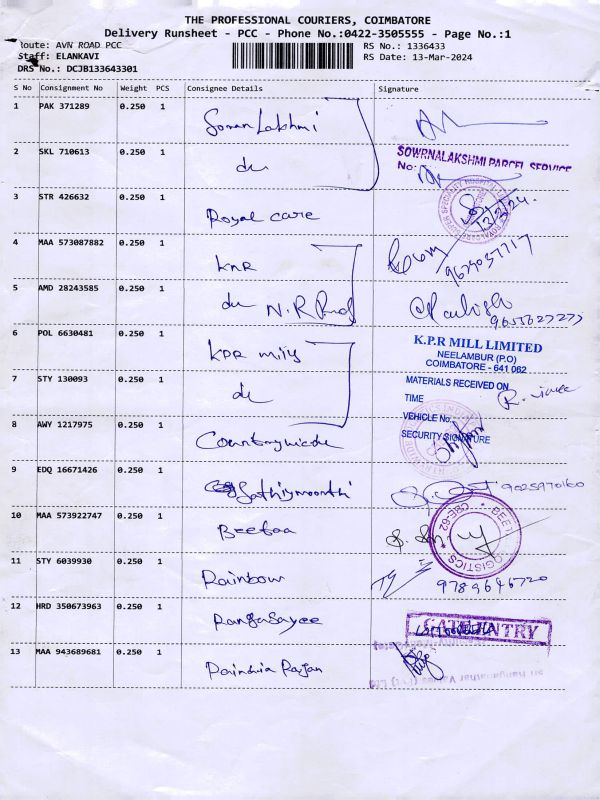 THE PROFESSIONAL COURIERS, COIMBATORE
Delivery Runsheet - PCC - Phone No.:0422-3505555 - Page No.:1
Route: AVN ROAD PCC RS No.: 1336433
Staff: ELANKAVI RS Date: 13-Mar-2024
DRS No.: DCJB133643301
S No Consignment No Weight PCS Consignee Details Signature
1 PAK 371289 0.250 1 Lakshmi
2 SKL 710613 0.250 1 du SOWRNALAKSHMI PARCEL SERVICE
No:
3 STR 426632 0.250 1 Royal care 13/3/24.
4 MAA 573087882 0.250 1 KNR
5 AMD 28243585 0.250 1 du N.R
6 POL 6630481 0.250 1 KPR mills K.P.R MILL LIMITED
NEELAMBUR (P.O)
COIMBATORE - 641 062
7 STY 130093 0.250 1 du MATERIALS RECEIVED ON
TIME
VEHICLE No.
8 AWY 1217975 0.250 1 SECURITY SIGNATURE
9 EDQ 16671426 0.250 1 Sathiymoorthi 9025970160
10 MAA 573922747 0.250 1 Beetaa
CBE-62 BEET LOGISTICS
11 STY 6039930 0.250 1 Rainbow 9789646720
12 HRD 350673963 0.250 1 RangaSayee
13 MAA 943689681 0.250 1 Rajan